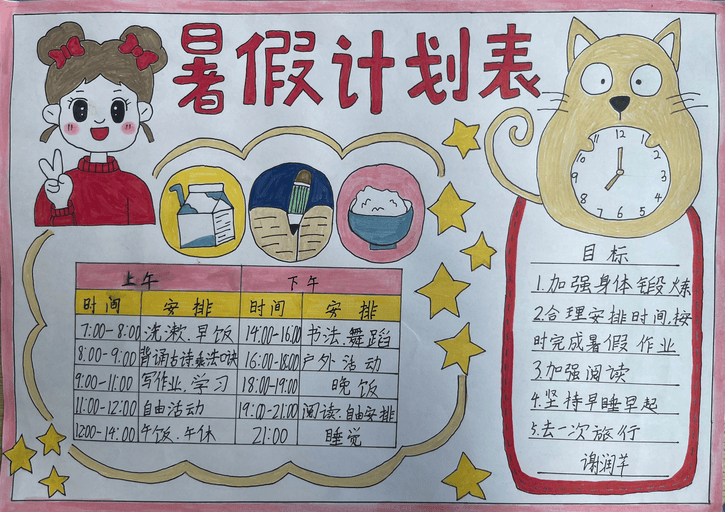 暑假计划表
12
11
1
10
2
9
3
8
4
7
5
6
上午 下午
时间 安排 时间 安排
7:00-8:00 洗漱、早饭 14:00-16:00 书法、舞蹈
8:00-9:00 背诵古诗乘法口诀 16:00-18:00 户外活动
9:00-11:00 写作业、学习 18:00-19:00 晚饭
11:00-12:00 自由活动 19:00-21:00 阅读、自由安排
12:00-14:00 午饭、午休 21:00 睡觉
目标
1.加强身体锻炼
2.合理安排时间,按
时完成暑假作业
3.加强阅读
4.坚持早睡早起
5.去一次旅行
谢润芊